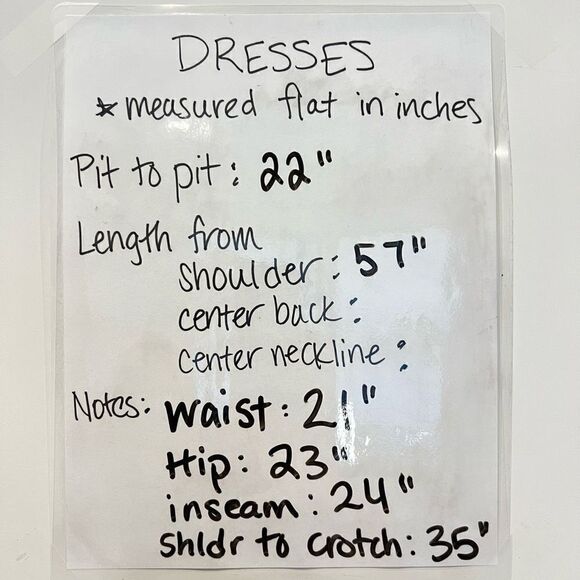 DRESSES
* measured flat in inches
Pit to pit: 22"
Length from
shoulder: 57"
center back:
center neckline:
Notes: Waist: 21"
Hip: 23"
inseam: 24"
Shldr to Crotch: 35"